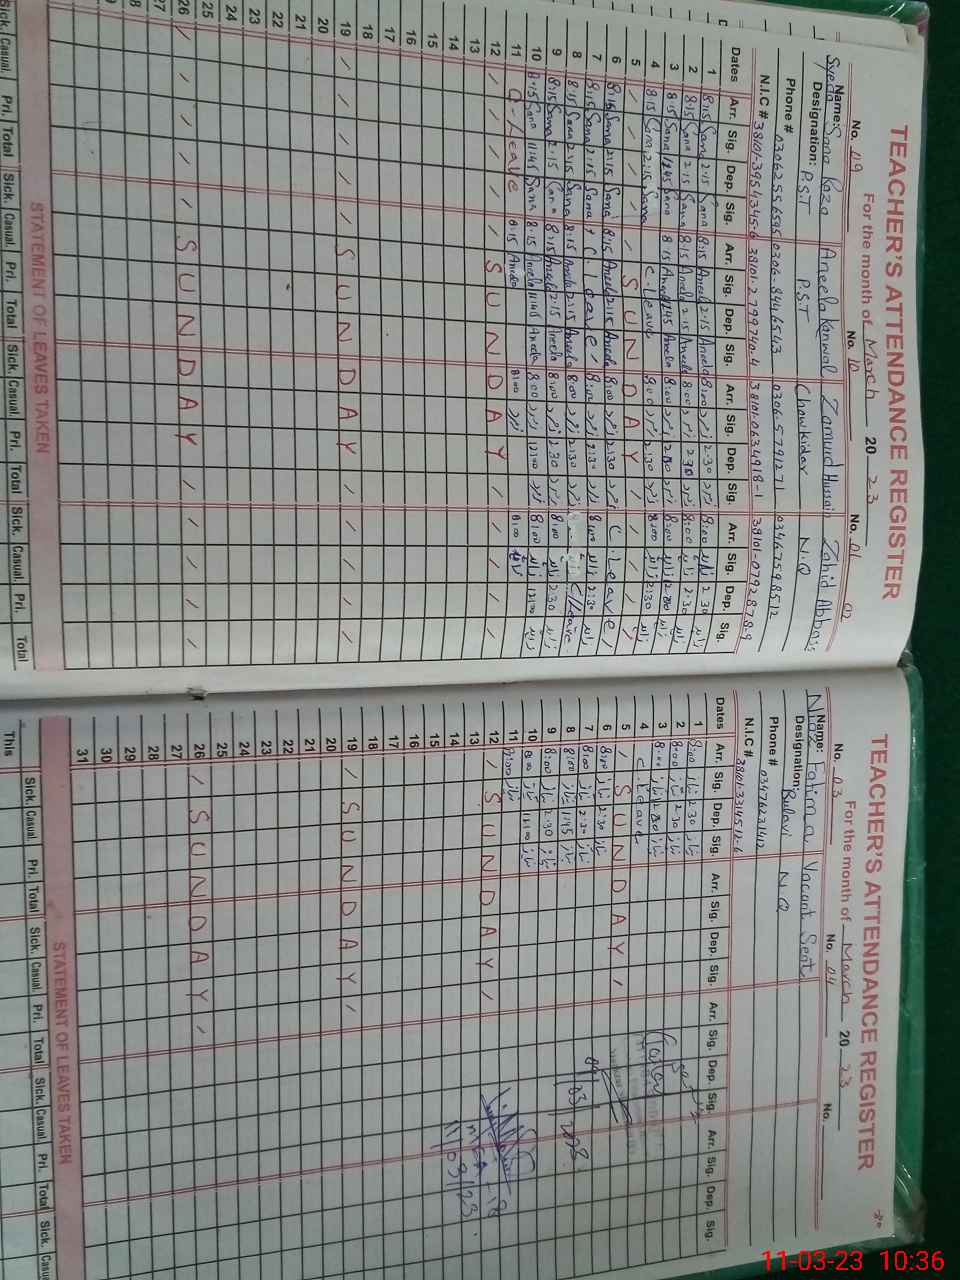 TEACHER'S ATTENDANCE REGISTER
For the month of March 2023
No. 09 No. 10 No. 01 02
Name: Syeda Sana Raza Aneela Kanwal Zamurd Hussain Zahid Abbas
Designation: P.S.T P.S.T Chowkidar N.Q
Phone # 0306-8446543 0306-5791271 03467598512
N.I.C #
Dates Arr. Sig. Dep. Sig. Arr. Sig. Dep. Sig. Arr. Sig. Dep. Sig. Arr. Sig. Dep. Sig.
1 8:15 Sana 2:15 Sana 8:15 Aneela 2:15 Aneela 8:00 2:30 8:00 2:30
2 8:15 Sana 2:15 Sana 8:15 Aneela 2:15 Aneela 8:00 2:30 8:00 2:30
3 8:15 Sana Sana 8:15 Aneela Aneela 8:00 8:00
4 8:15 Sana 2:15 Sana C. Leave 8:00 2:30 8:00 2:30
5 / / / / / S U N D A Y / / / /
6 8:15 Sana 2:15 Sana 8:15 Aneela 2:15 Aneela 8:00 2:30 C. Leave /
7 8:15 Sana 2:15 Sana C. Leave / 8:00 2:30 8:00 2:30
8 8:15 Sana 2:15 Sana 8:15 Aneela 2:15 Aneela 8:00 2:30 C/Leave
9 8:15 Sana 2:15 Sana 8:15 Aneela 2:15 Aneela 8:00 2:30 8:00 2:30
10 8:15 Sana 11:45 Sana 8:15 Aneela 11:45 Aneela 8:00 12:00 8:00 12:00
11 C-Leave 8:15 Aneela 8:00 8:00
12 / / / / / S U N D A Y / / / /
13
14
15
16
17
18
19 / / / / / S U N D A Y / / / /
20
21
22
23
24
25
26 / / / / / S U N D A Y / / / /
27
STATEMENT OF LEAVES TAKEN
Sick. Casual. Pri. Total Sick. Casual. Pri. Total Sick. Casual. Pri. Total Sick. Casual. Pri. Total
TEACHER'S ATTENDANCE REGISTER
For the month of March 2023
No. 03 No. 04 No.
Name: Niaz Fatima Vacant Seat
Designation: Bulavi N.Q
Phone # 03476231412
N.I.C # 38101-3314512-6
Dates Arr. Sig. Dep. Sig. Arr. Sig. Dep. Sig. Arr. Sig. Dep. Sig. Arr. Sig. Dep. Sig.
1 8:00 نیاز 2:30 نیاز
2 8:00 نیاز 2:30 نیاز
3 8:00 نیاز نیاز
4 C. Leave
5 / S U N D A Y /
6 8:00 نیاز 2:30 نیاز
7 8:00 نیاز 2:30 نیاز
8 8:00 نیاز 1:45 نیاز
9 8:00 نیاز 2:30 نیاز
10 8:00 نیاز 12:00 نیاز
11 8:00 نیاز
12 / S U N D A Y /
13
14
15
16
17
18
19 / S U N D A Y /
20
21
22
23
24
25
26 / S U N D A Y /
27
28
29
30
31
MEA-18
11/03/23
STATEMENT OF LEAVES TAKEN
Sick. Casual. Pri. Total Sick. Casual. Pri. Total Sick. Casual. Pri. Total Sick. Casual.
This
11-03-23 10:36